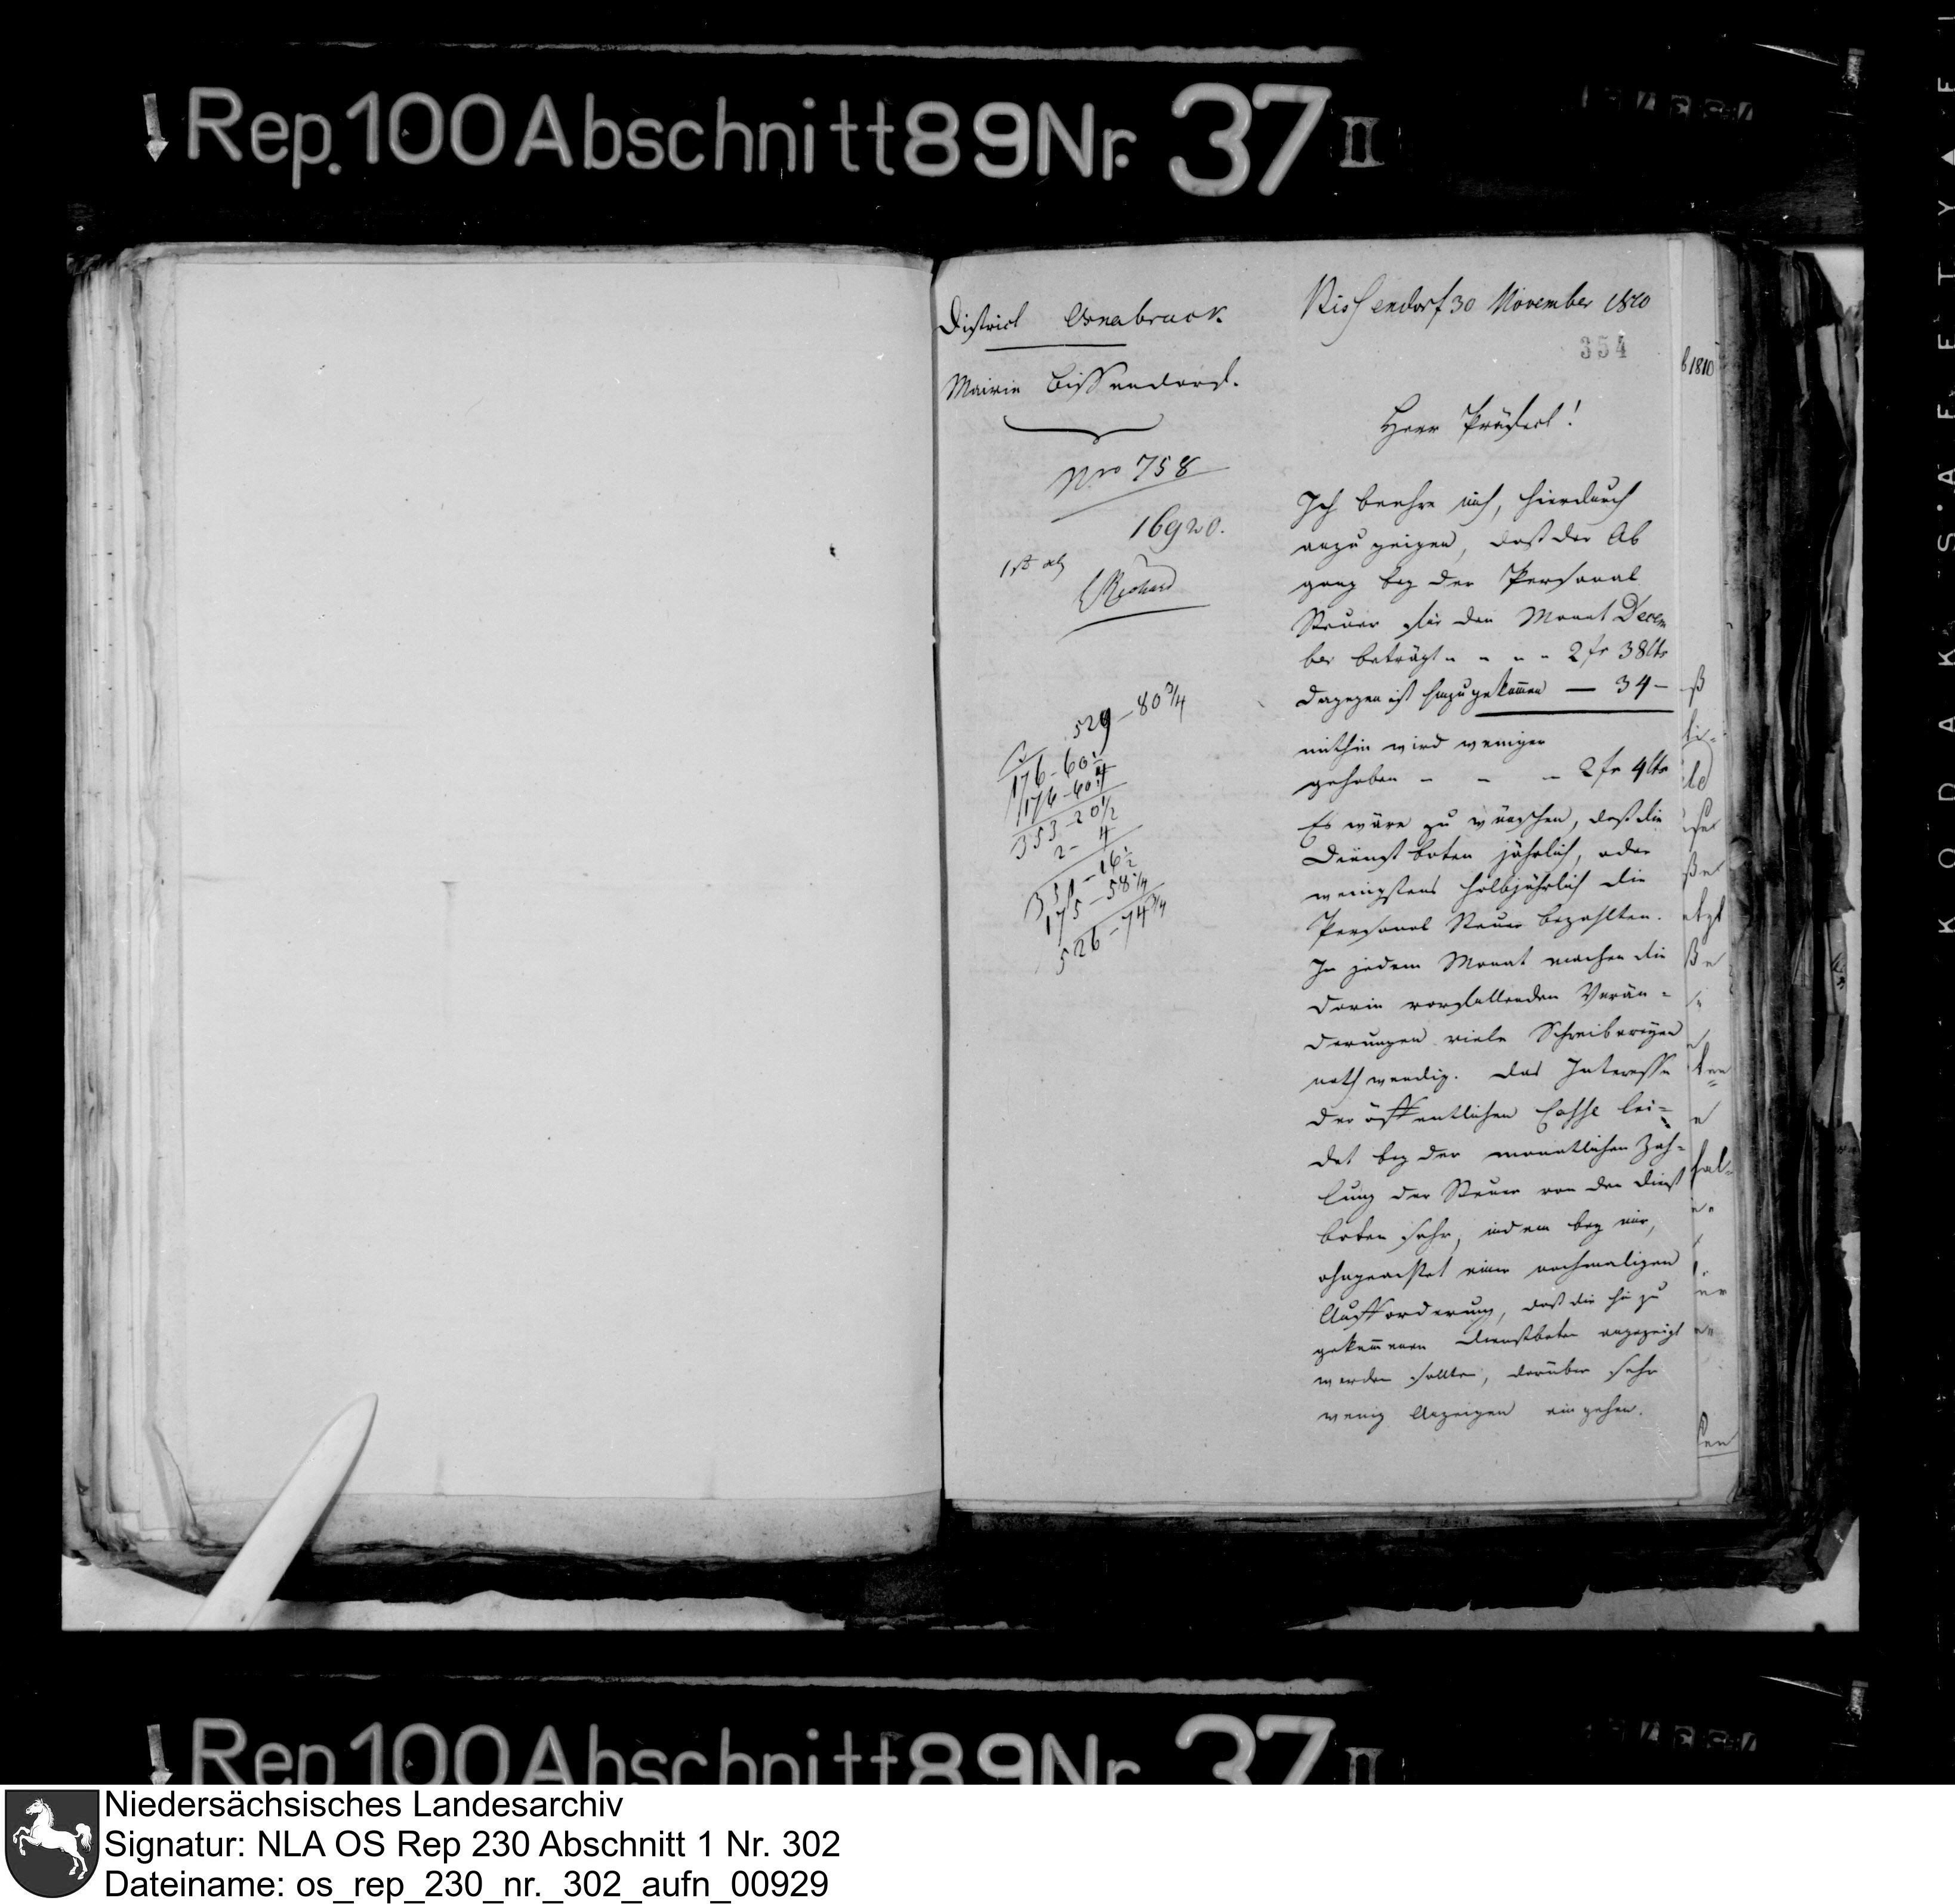 Rep. 100 Abschnitt 89 Nr. 37 II
District Osnabruck
Mairie Bissendorf.
Nro 758
16920.
Richard
529-80 3/4
176-60 1/4
176-60 1/4
353-20 1/2
2- 4
351-16 1/2
175-58 1/4
526-74 3/4
Bissendorf 30 November 1810
354
Herr Präfect!
Ich beehre mich, hierdurch
anzuzeigen, daß der Ab
gang bey der Personal
Steuer für den Monat Decem
ber beträgt - - - - 2 fr 38 Cts
dagegen ist hinzugekommen — 34 -
mithin wird weniger
gehoben - - - 2 fr 4 Cts
Es wäre zu wünschen, daß die
Dienstboten jährlich, oder
wenigstens halbjährlich die
Personal Steuer bezahlten.
In jedem Monat machen die
darin vorfallenden Verän-
derungen viele Schreibereyen
nothwendig. Das Interesse
der öffentlichen Casse lei-
det bey der monatlichen Zah-
lung der Steuer von den Dienst
boten sehr, indem bey mir,
ohngeachtet einer nochmaligen
Aufforderung, daß die hinzu
gekommenen Dienstboten angezeigt
werden sollten, darüber sehr
wenig Anzeigen eingehen.
1810
KODAK SAFETY
Rep. 100 Abschnitt 89 Nr. 37 II
Niedersächsisches Landesarchiv
Signatur: NLA OS Rep 230 Abschnitt 1 Nr. 302
Dateiname: os_rep_230_nr._302_aufn_00929